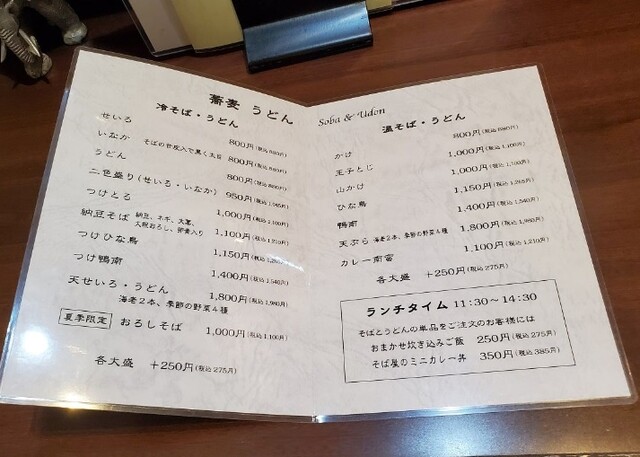 蕎麦 うどん
冷そば・うどん
せいろ 800円(税込880円)
いなか そばの甘皮入で黒く太目 800円(税込880円)
うどん 800円(税込880円)
二色盛り(せいろ・いなか) 950円(税込1,045円)
つけとろ 1,000円(税込1,100円)
納豆そば 納豆、ネギ、大葉、大根おろし、卵黄入り 1,100円(税込1,210円)
つけひな鳥 1,150円(税込1,265円)
つけ鴨南 1,400円(税込1,540円)
天せいろ・うどん 1,800円(税込1,980円)
海老2本、季節の野菜4種
夏季限定 おろしそば 1,000円(税込1,100円)
各大盛 +250円(税込275円)
Soba & Udon
温そば・うどん
かけ 800円(税込880円)
玉子とじ 1,000円(税込1,100円)
山かけ 1,000円(税込1,100円)
ひな鳥 1,150円(税込1,265円)
鴨南 1,400円(税込1,540円)
天ぷら 海老2本、季節の野菜4種 1,800円(税込1,980円)
カレー南蛮 1,100円(税込1,210円)
各大盛 +250円(税込275円)
ランチタイム 11:30~14:30
そばとうどんの単品をご注文のお客様には
おまかせ炊き込みご飯 250円(税込275円)
そば屋のミニカレー丼 350円(税込385円)